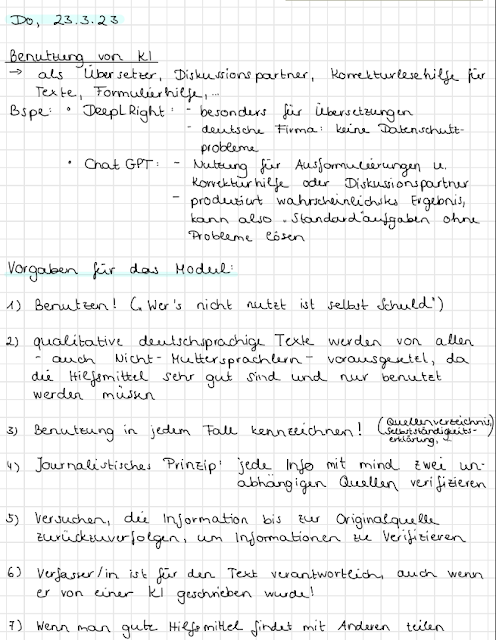 Do, 23.3.23
Benutzung von KI
→ als Übersetzer, Diskussionspartner, Korrekturlesehilfe für
Texte, Formulierhilfe,...
Bspe: • DeepL Right: - besonders für Übersetzungen
- deutsche Firma: keine Datenschutz-
probleme
• Chat GPT: - Nutzung für Ausformulierungen u.
Korrekturhilfe oder Diskussionspartner
- produziert wahrscheinlichstes Ergebnis,
kann also "Standard"aufgaben ohne
Probleme lösen
Vorgaben für das Modul:
1) Benutzen! ("Wer's nicht nutzt ist selbst Schuld")
2) qualitative deutschsprachige Texte werden von allen
- auch Nicht-Muttersprachlern - vorausgesetzt, da
die Hilfsmittel sehr gut sind und nur benutzt
werden müssen
3) Benutzung in jedem Fall kennzeichnen! (Quellenverzeichnis,
Selbstständigkeits-
erklärung)
4) Journalistisches Prinzip: jede Info mit mind zwei un-
abhängigen Quellen verifizieren
5) Versuchen, die Information bis zur Originalquelle
zurückzuverfolgen, um Informationen zu Verifizieren
6) Verfasser/in ist für den Text verantwortlich, auch wenn
er von einer KI geschrieben wurde!
7) Wenn man gute Hilfsmittel findet mit Anderen teilen